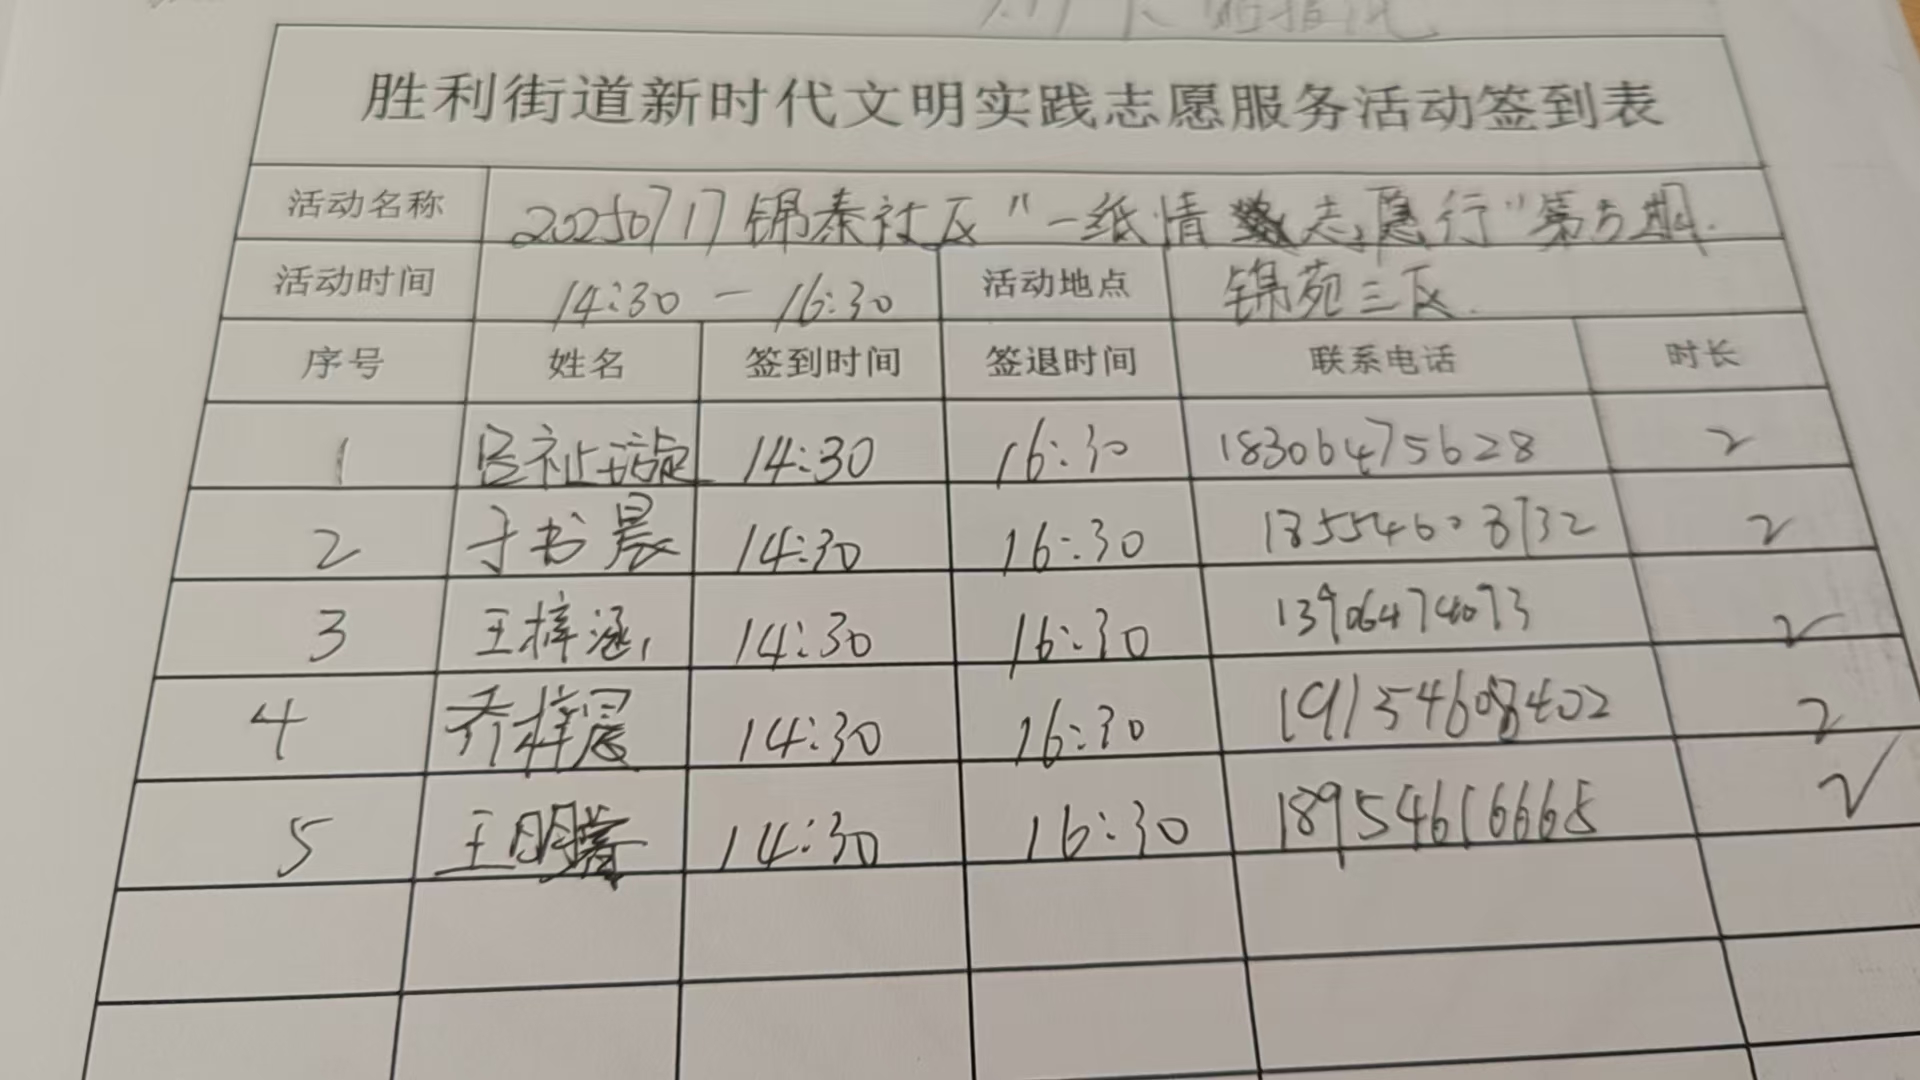 胜利街道新时代文明实践志愿服务活动签到表
活动名称 20250717锦泰社区“一纸情 志愿行”第五期.
活动时间 14:30 — 16:30 活动地点 锦苑三区.
序号 姓名 签到时间 签退时间 联系电话 时长
1 14:30 16:30 18306475628 2
2 于书晨 14:30 16:30 18554608732 2
3 王梓涵 14:30 16:30 13906474073 2
4 乔梓晨 14:30 16:30 19154608402 2
5 王明 14:30 16:30 18954616665 2